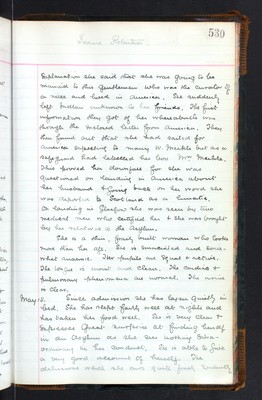 530
explanation she said that she was going to be
married to this gentleman who was the curator of
a and lived in America. She suddenly
left unknown to her friends. The first
information they got of her whereabouts was
through the letter from America. They
then found out that she had sailed for
America expecting to marry W. but as a
safeguard had labelled her box Mrs
This proved her downfall for she was
questioned on landing in America about
her husband & going back on her word she
was deported to Scotland as a lunatic.
On landing in Glasgow she was seen by two
medical men who certified her & she was brought
by her relatives to the Asylum.
She is a thin, frail woman who looks
more than her age. She is and some
what anaemic. The pupils are equal & active.
The tongue is moist and clean. The cardiac &
pulmonary phenomena are normal. The urine
is clear.
May 12. Since admission she has lain quietly in
bed. She has slept fairly well at nights and
has taken her food well. She is very clear &
expresses great surprise at finding herself
in an Asylum as she sees nothing extra-
ordinary in her conduct. She is able to give
a very good account of herself. The
delusions which she are quite fixed